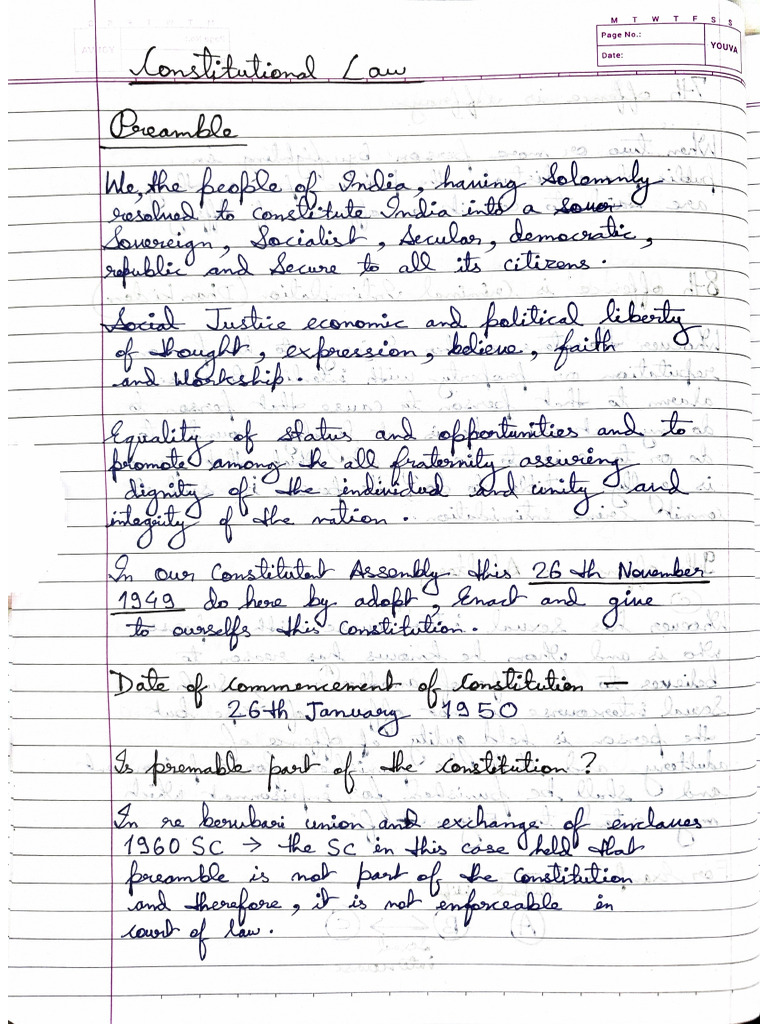 M T W T F S S
Page No.:
Date:
YOUVA
Constitutional Law
Preamble
We, the people of India, having Solomnly
resolved to constitute India into a
Sovereign, Socialist, Secular, democratic,
republic and Secure to all its citizens.
Social Justice economic and political liberty
of thought, expression, believe, faith
and Workship..
Equality of status and opportunities and to
promote among the all fraternity assuring
dignity of the individual and unity and
integrity of the nation.
In our Constitutent Assembly this 26th November
1949 do here by adopt, Enact and give
to ourselfs this Constitution.
Date of commencement of Constitution —
26th January 1950
Is premable part of the constitution?
In re berubari union and exchange of enclaves
1960 SC → the SC in this case held that
preamble is not part of the Constitution
and therefore, it is not enforceable in
court of law.